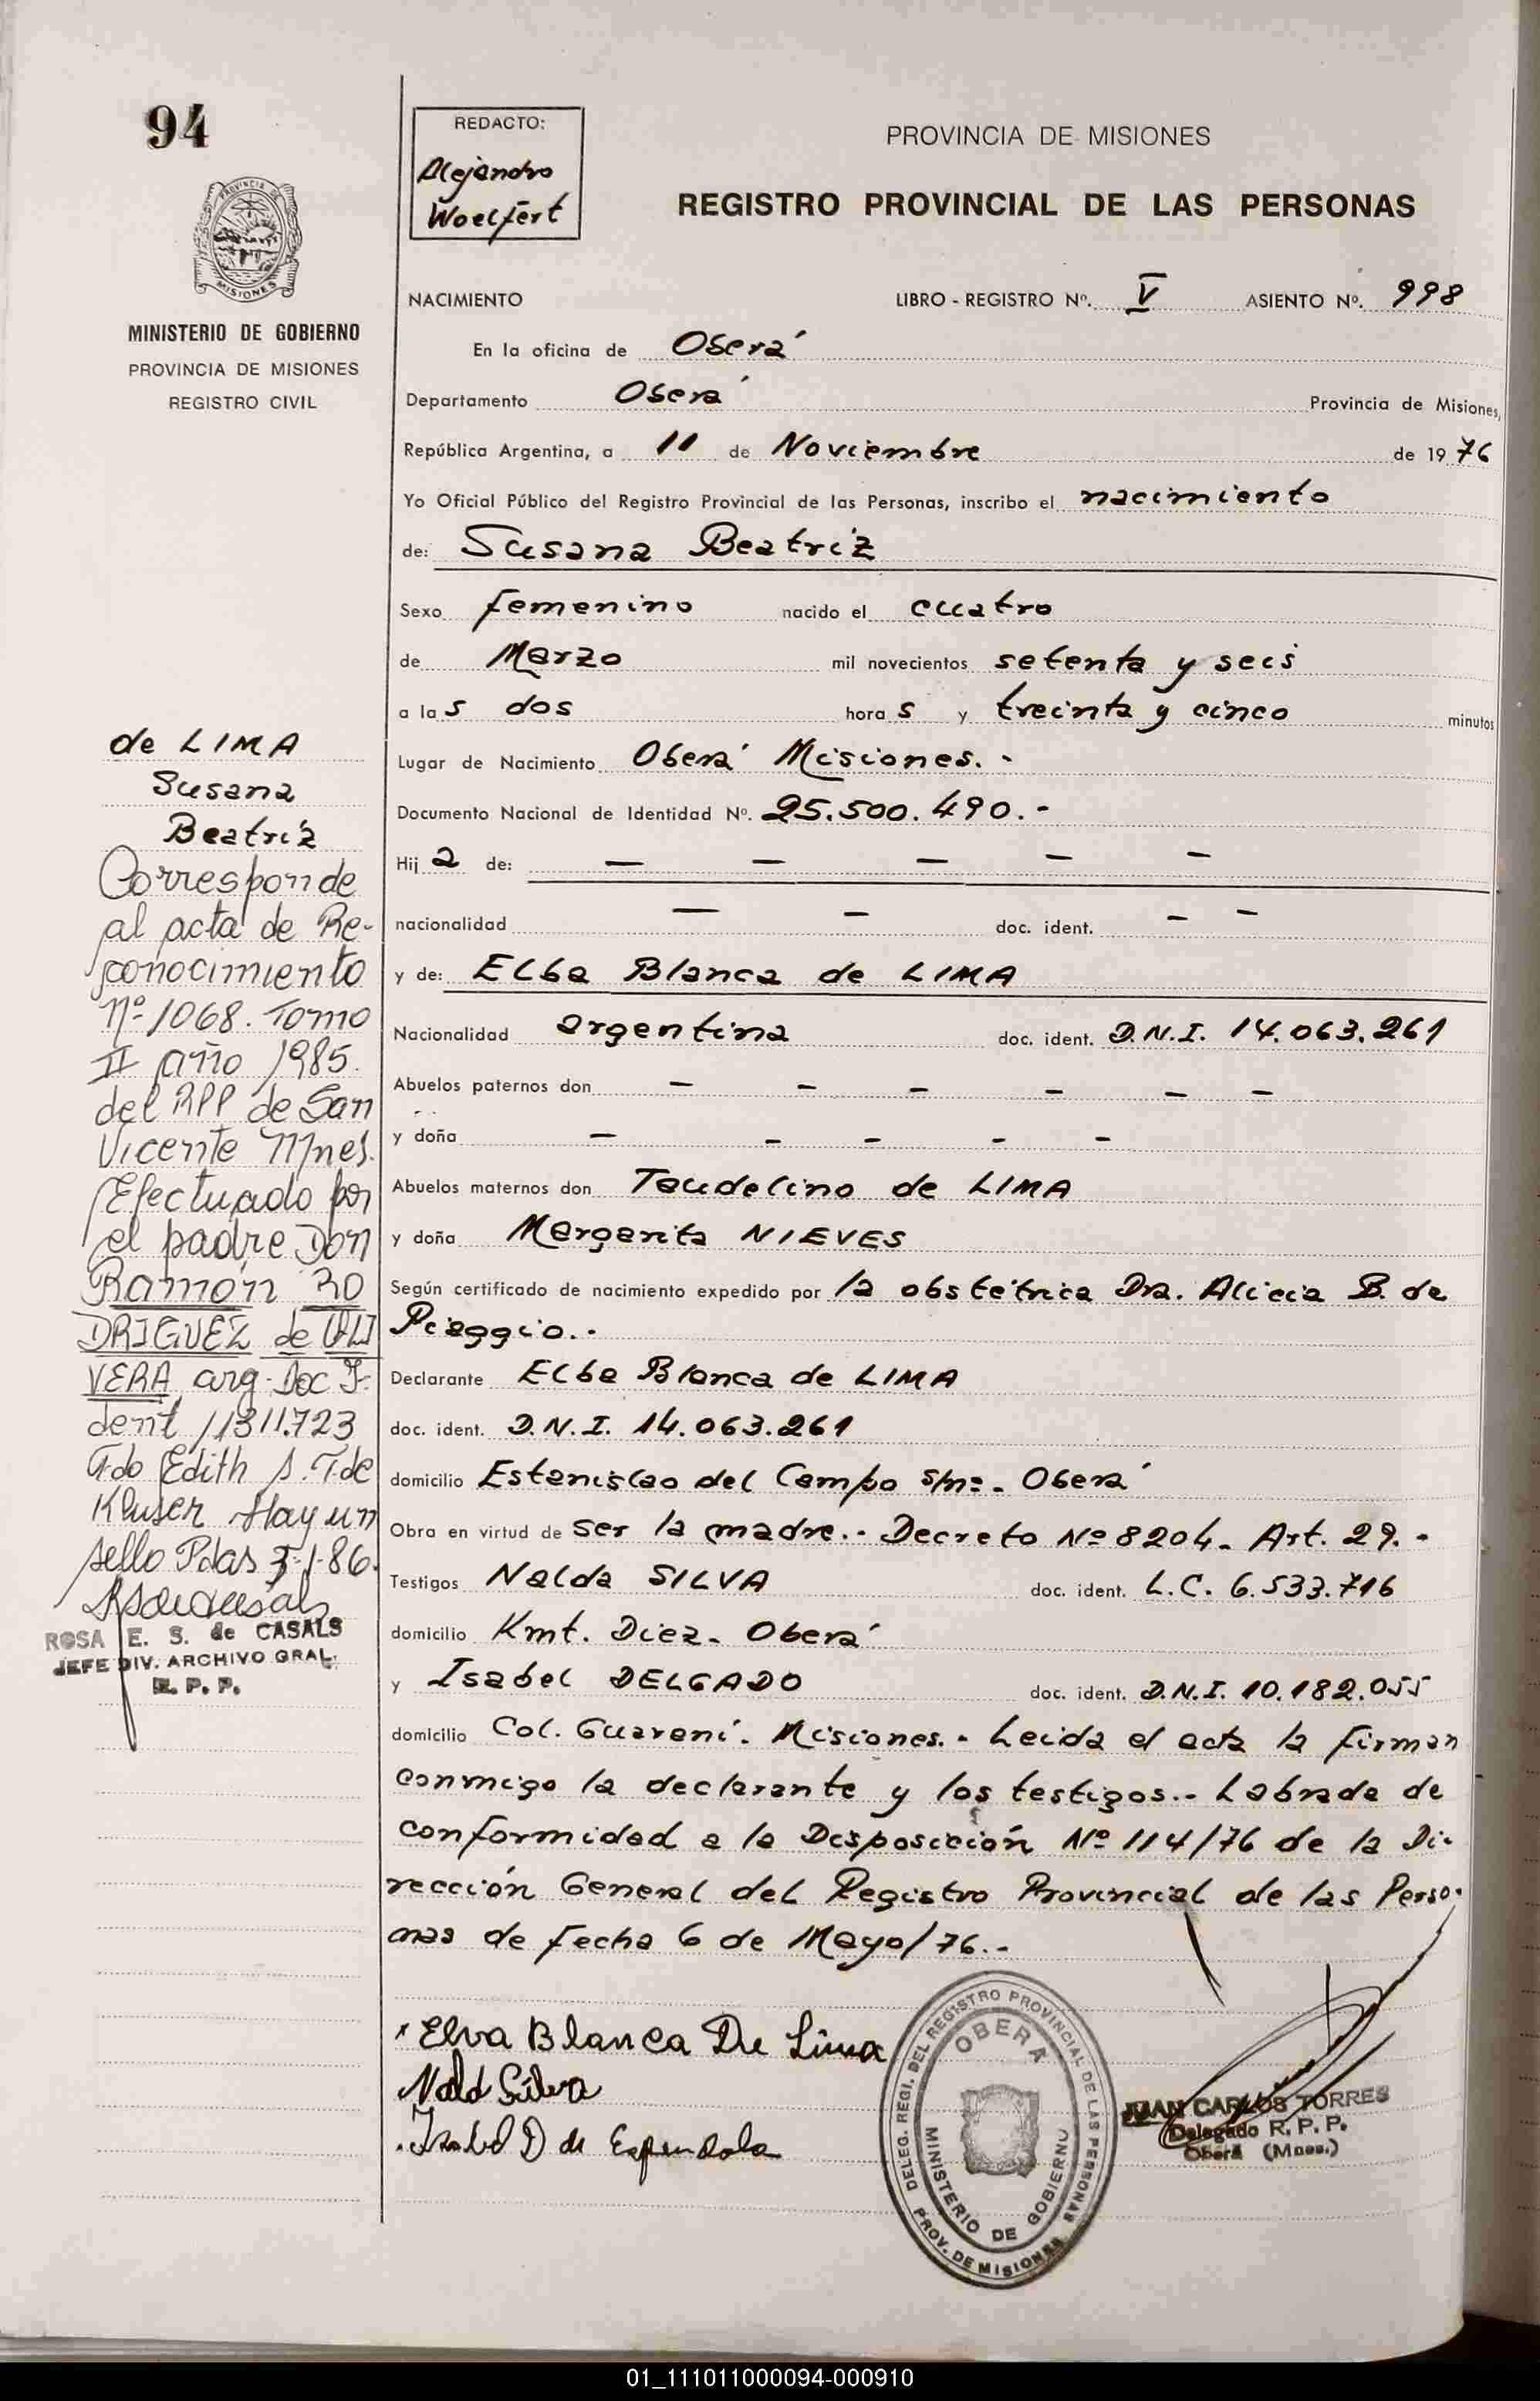 94
REDACTO:
Alejandro
Woelfert
PROVINCIA DE MISIONES
REGISTRO PROVINCIAL DE LAS PERSONAS
MISIONES
MINISTERIO DE GOBIERNO
PROVINCIA DE MISIONES
REGISTRO CIVIL
NACIMIENTO LIBRO - REGISTRO Nº. V ASIENTO Nº. 998
En la oficina de Oberá
Departamento Oberá Provincia de Misiones,
República Argentina, a 11 de Noviembre de 1976
Yo Oficial Público del Registro Provincial de las Personas, inscribo el nacimiento
de: Susana Beatriz
Sexo femenino nacido el cuatro
de Marzo mil novecientos setenta y seis
a las dos horas y treinta y cinco minutos
Lugar de Nacimiento Oberá Misiones. -
Documento Nacional de Identidad Nº. 25.500.490. -
Hija de: — — — — —
nacionalidad — — doc. ident. — —
y de: Elba Blanca de LIMA
Nacionalidad argentina doc. ident. D.N.I. 14.063.261
Abuelos paternos don — — — — — —
y doña — — — — —
Abuelos maternos don Taudelino de LIMA
y doña Margarita NIEVES
Según certificado de nacimiento expedido por la obstétrica Dra. Alicia B. de
Piaggio. -
Declarante Elba Blanca de LIMA
doc. ident. D.N.I. 14.063.261
domicilio Estanislao del Campo s/nº - Oberá
Obra en virtud de ser la madre. - Decreto Nº 8204 - Art. 29. -
Testigos Nalda SILVA doc. ident. L.C. 6.533.716
domicilio Kmt. Diez - Oberá
y Isabel DELGADO doc. ident. D.N.I. 10.182.055
domicilio Col. Guaraní. Misiones. - Leida el acta la firman
conmigo la declarante y los testigos. - Labrada de
conformidad a la Disposición Nº 114/76 de la Di-
rección General del Registro Provincial de las Perso-
nas de fecha 6 de Mayo/76. -
de LIMA
Susana
Beatriz
Corresponde
al acta de Re-
conocimiento
Nº 1068. Tomo
II año 1985.
del RPP de San
Vicente Mnes.
Efectuado por
el padre Don
Ramón RO
DRIGUEZ de OLI
VERA arg. Doc I-
dent 11311.723
Fdo Edith S. T. de
Kluser Hay un
sello Pdas 3-1-86.
ROSA E. S. de CASALS
JEFE DIV. ARCHIVO GRAL.
R. P. P.
Elva Blanca De Lima
Nald Silva
Isabel D de Espindola
DELEG. REGI. DEL REGISTRO PROVINCIAL DE LAS PERSONAS
OBERA
MINISTERIO DE GOBIERNO
PROV. DE MISIONES
JUAN CARLOS TORRES
Delegado R. P. P.
Oberá (Mnes.)
01_111011000094-000910